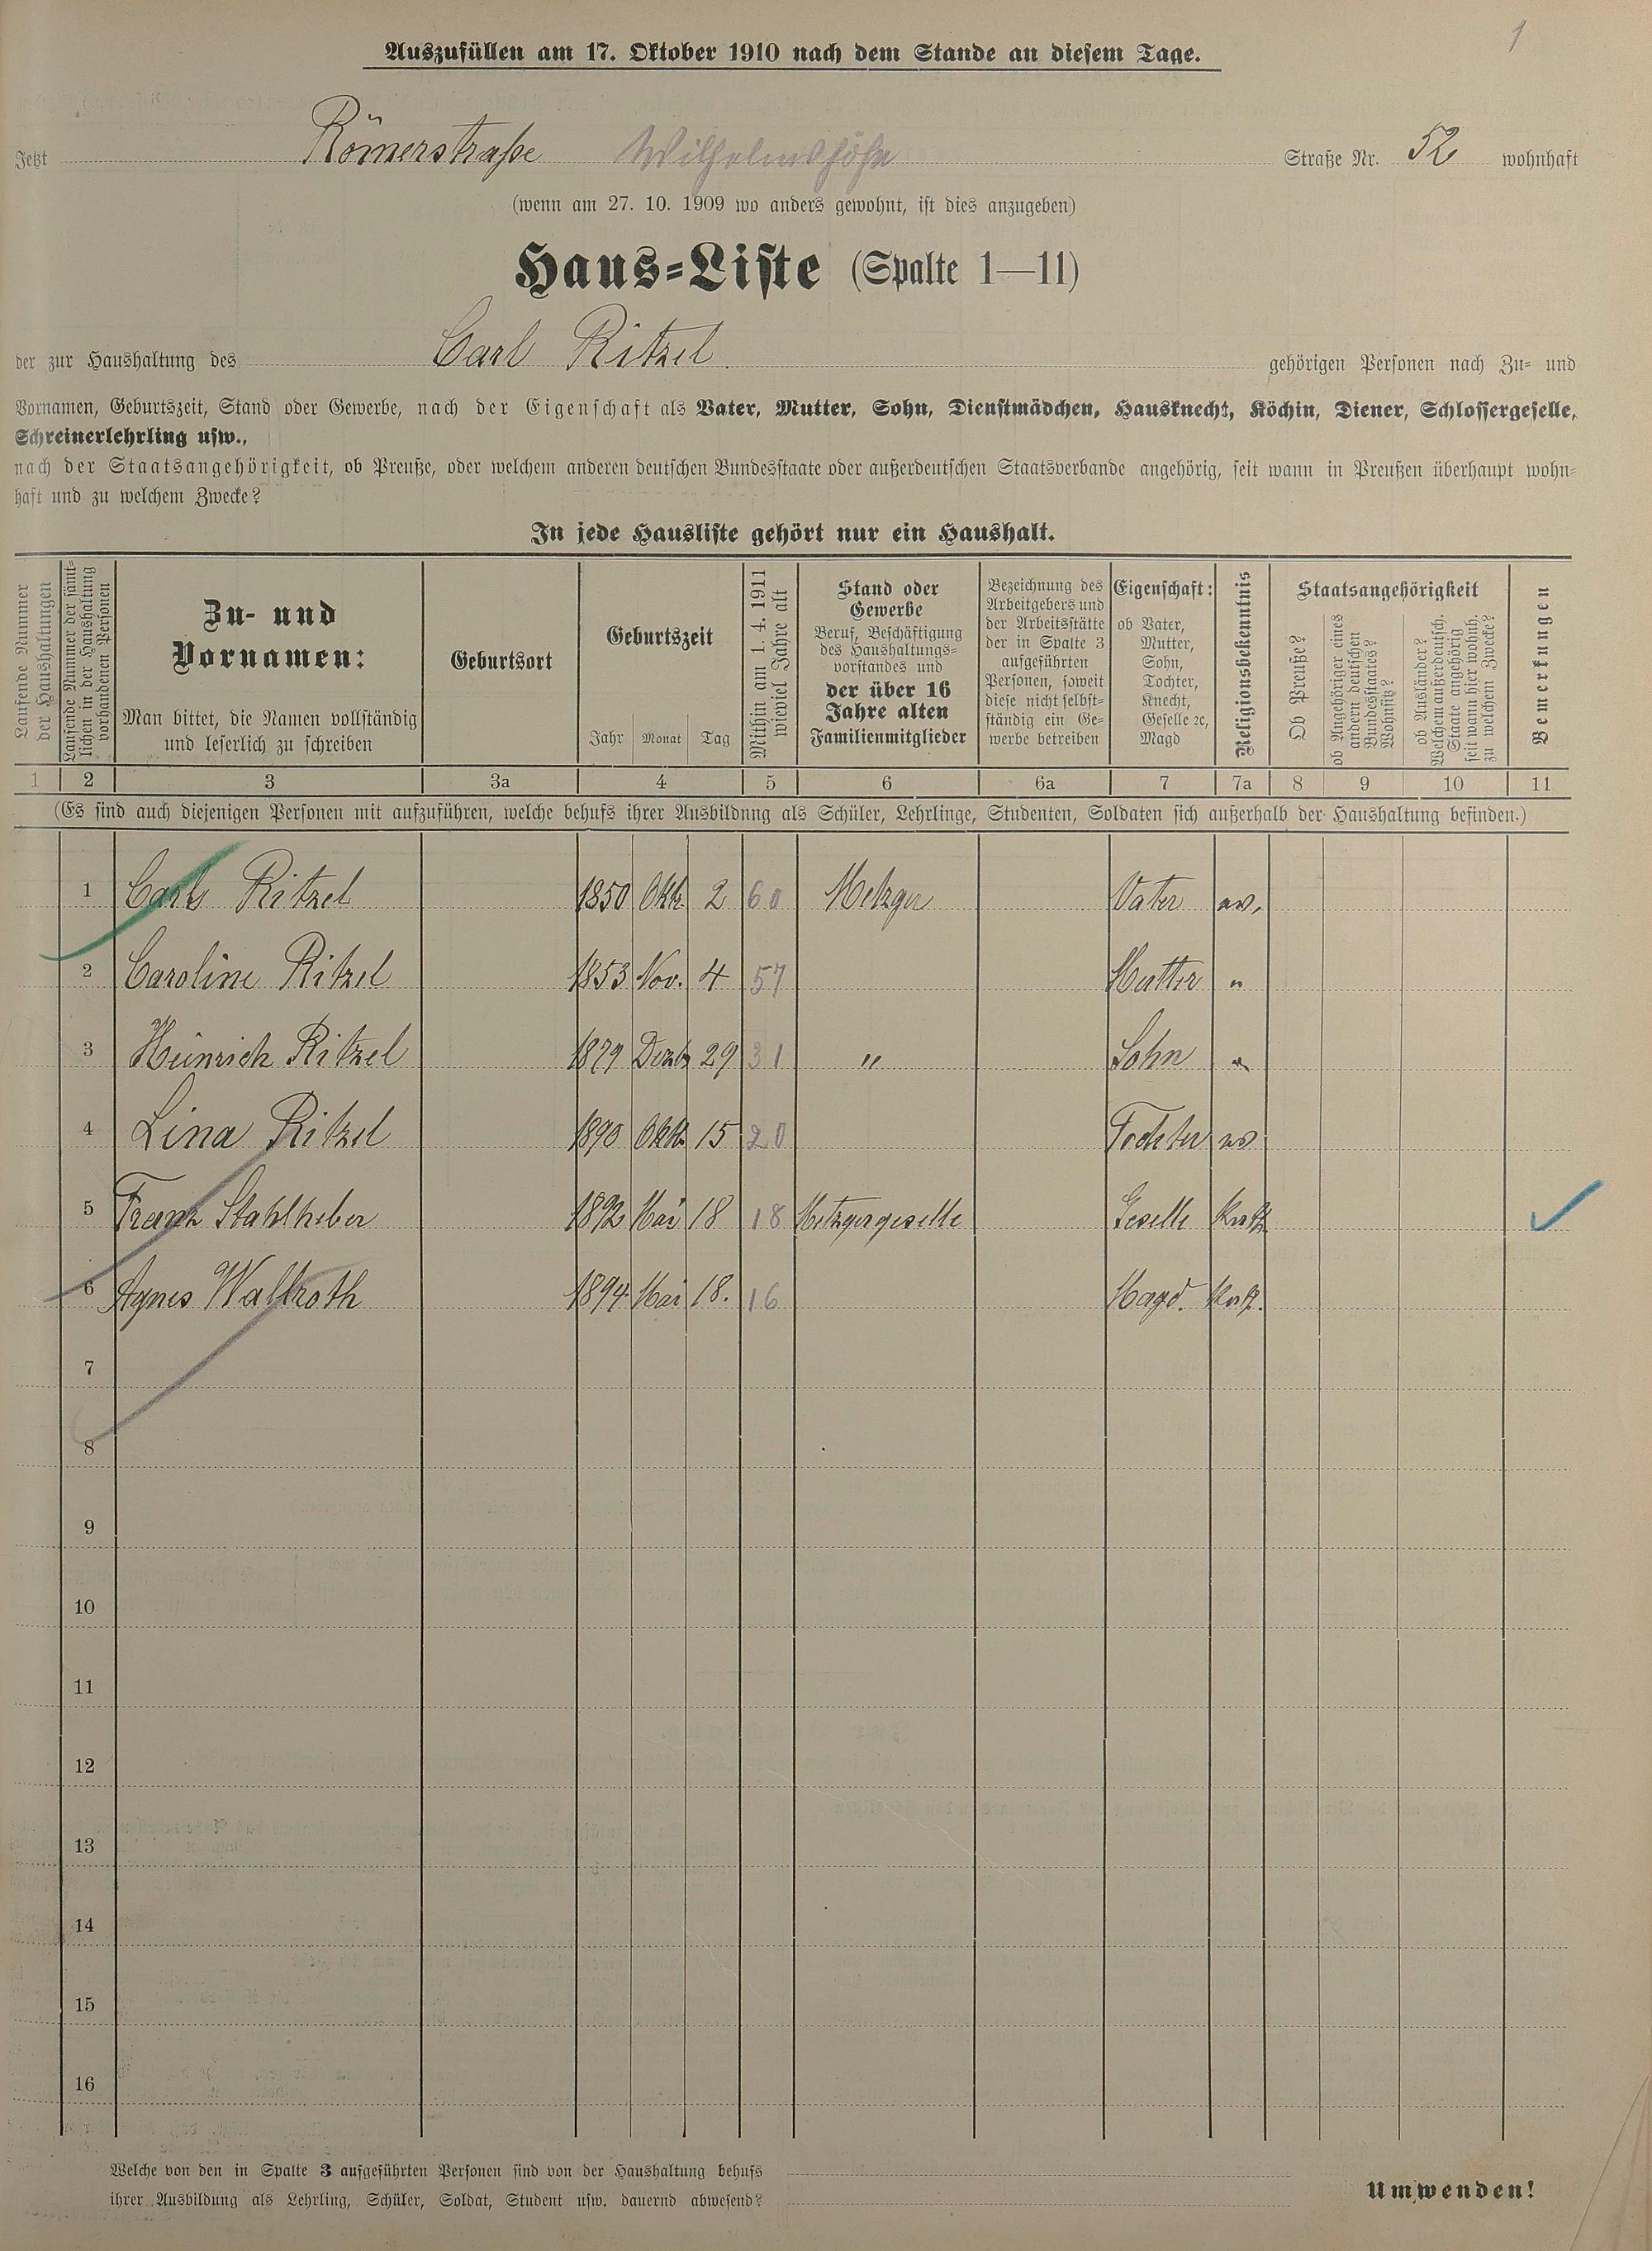 1
Auszufüllen am 17. Oktober 1910 nach dem Stande an diesem Tage.
Jetzt Römerstraße Wilhelmshöhe Straße Nr. 52 wohnhaft
(wenn am 27. 10. 1909 wo anders gewohnt, ist dies anzugeben)
Haus-Liste (Spalte 1—11)
der zur Haushaltung des Carl Ritzel. gehörigen Personen nach Zu- und
Vornamen, Geburtszeit, Stand oder Gewerbe, nach der Eigenschaft als Vater, Mutter, Sohn, Dienstmädchen, Hausknecht, Köchin, Diener, Schlossergeselle,
Schreinerlehrling usw.,
nach der Staatsangehörigkeit, ob Preuße, oder welchem anderen deutschen Bundesstaate oder außerdeutschen Staatsverbande angehörig, seit wann in Preußen überhaupt wohn-
haft und zu welchem Zwecke?
In jede Hausliste gehört nur ein Haushalt.
Laufende Nummer
der Haushaltungen
Laufende Nummer der sämt-
lichen in der Haushaltung
vorhandenen Personen
Zu- und
Vornamen:
Man bittet, die Namen vollständig
und leserlich zu schreiben
Geburtsort
Geburtszeit
Jahr Monat Tag
Mithin am 1. 4. 1911
wieviel Jahre alt
Stand oder
Gewerbe
Beruf, Beschäftigung
des Haushaltungs-
vorstandes und
der über 16
Jahre alten
Familienmitglieder
Bezeichnung des
Arbeitgebers und
der Arbeitsstätte
der in Spalte 3
aufgeführten
Personen, soweit
diese nicht selbst-
ständig ein Ge-
werbe betreiben
Eigenschaft:
ob Vater,
Mutter,
Sohn,
Tochter,
Knecht,
Geselle ꝛc,
Magd
Religionsbekenntnis
Staatsangehörigkeit
Ob Preuße?
ob Angehöriger eines
andern deutschen
Bundesstaates?
Wohnsitz?
ob Ausländer?
Welchem außerdeutsch.
Staate angehörig
seit wann hier wohnh.
zu welchem Zwecke?
Bemerkungen
1 2 3 3a 4 5 6 6a 7 7a 8 9 10 11
(Es sind auch diejenigen Personen mit aufzuführen, welche behufs ihrer Ausbildung als Schüler, Lehrlinge, Studenten, Soldaten sich außerhalb der Haushaltung befinden.)
1 Carl Ritzel 1850 Oktb. 2 60 Metzger Vater ev.
2 Caroline Ritzel 1853 Nov. 4 57 Mutter "
3 Heinrich Ritzel 1879 Dezb. 29 31 " Sohn "
4 Lina Ritzel 1890 Oktb. 15 20 Tochter ev
5 Franz Stahlheber 1892 Mai 18 18 Metzgergeselle Geselle Kath
6 Agnes Wallroth 1894 Mai 18. 16 Magd. Kath.
7
8
9
10
11
12
13
14
15
16
Welche von den in Spalte 3 aufgeführten Personen sind von der Haushaltung behufs
ihrer Ausbildung als Lehrling, Schüler, Soldat, Student usw. dauernd abwesend?
Umwenden!